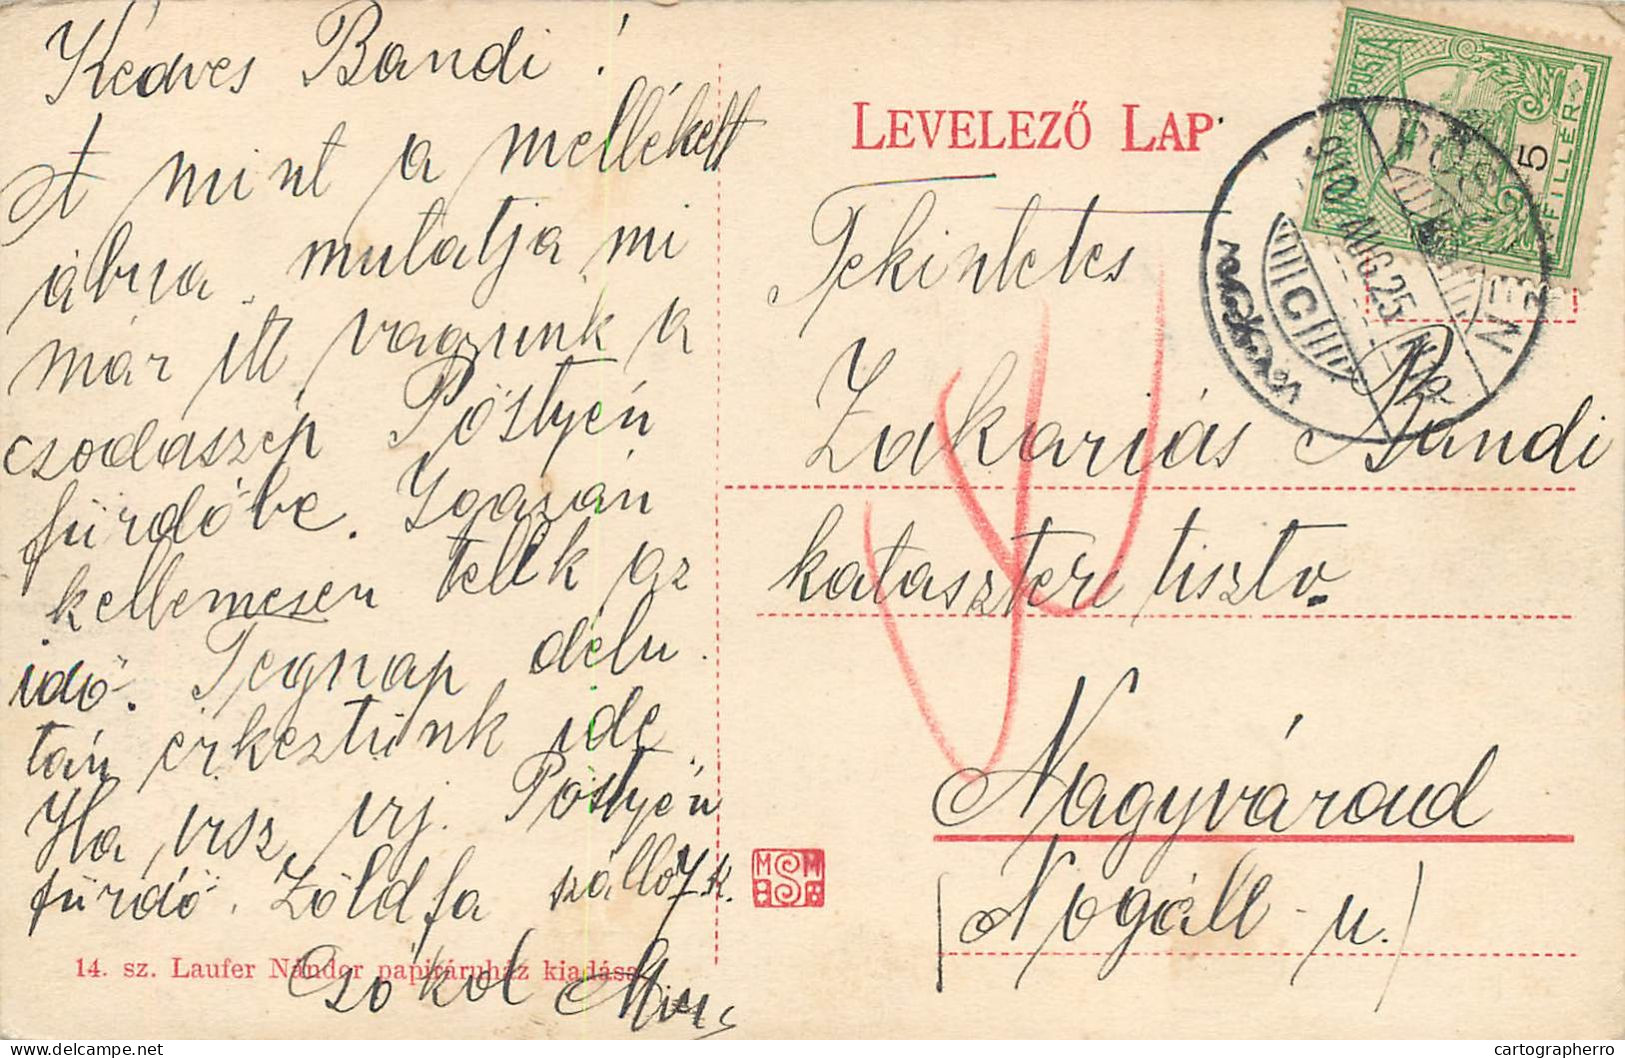 Kedves Bandi!
A mint a mellékelt
ábra mutatja mi
már itt vagyunk a
csodaszép Pöstyén
fürdőbe. Igazán
kellemesen tellik az
idő. Tegnap délu
tán érkeztünk ide
Ha irsz irj. Pöstyén
fürdő. Zöldfa szálló
Csókol
14. sz. Laufer Nándor papiráruház kiadása
LEVELEZŐ LAP
POSTA
5
FILLÉR
PÖSTYÉN
910 AUG.25
C
Tekintetes
Zakariás Bandi
kataszteri tisztv.
Nagyvárad
(Nogáll-u.)
MSM
cartographerro